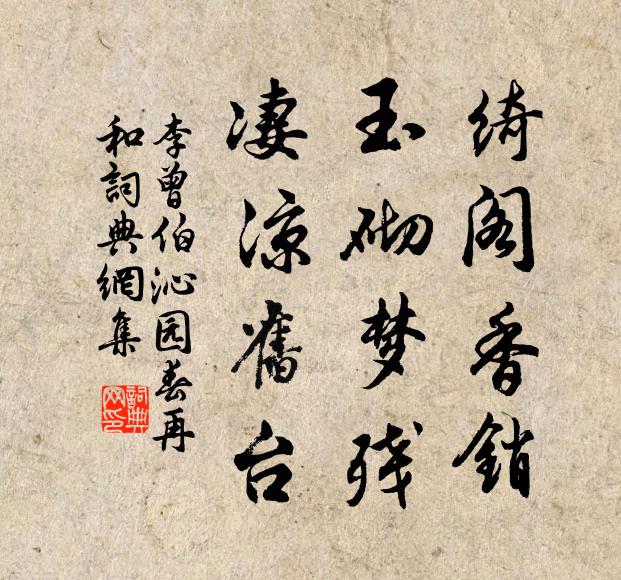 绮阁香銷
玉砌梦残
凄凉舊台
李曾伯沁园春再
和詞典網集
詞典网印